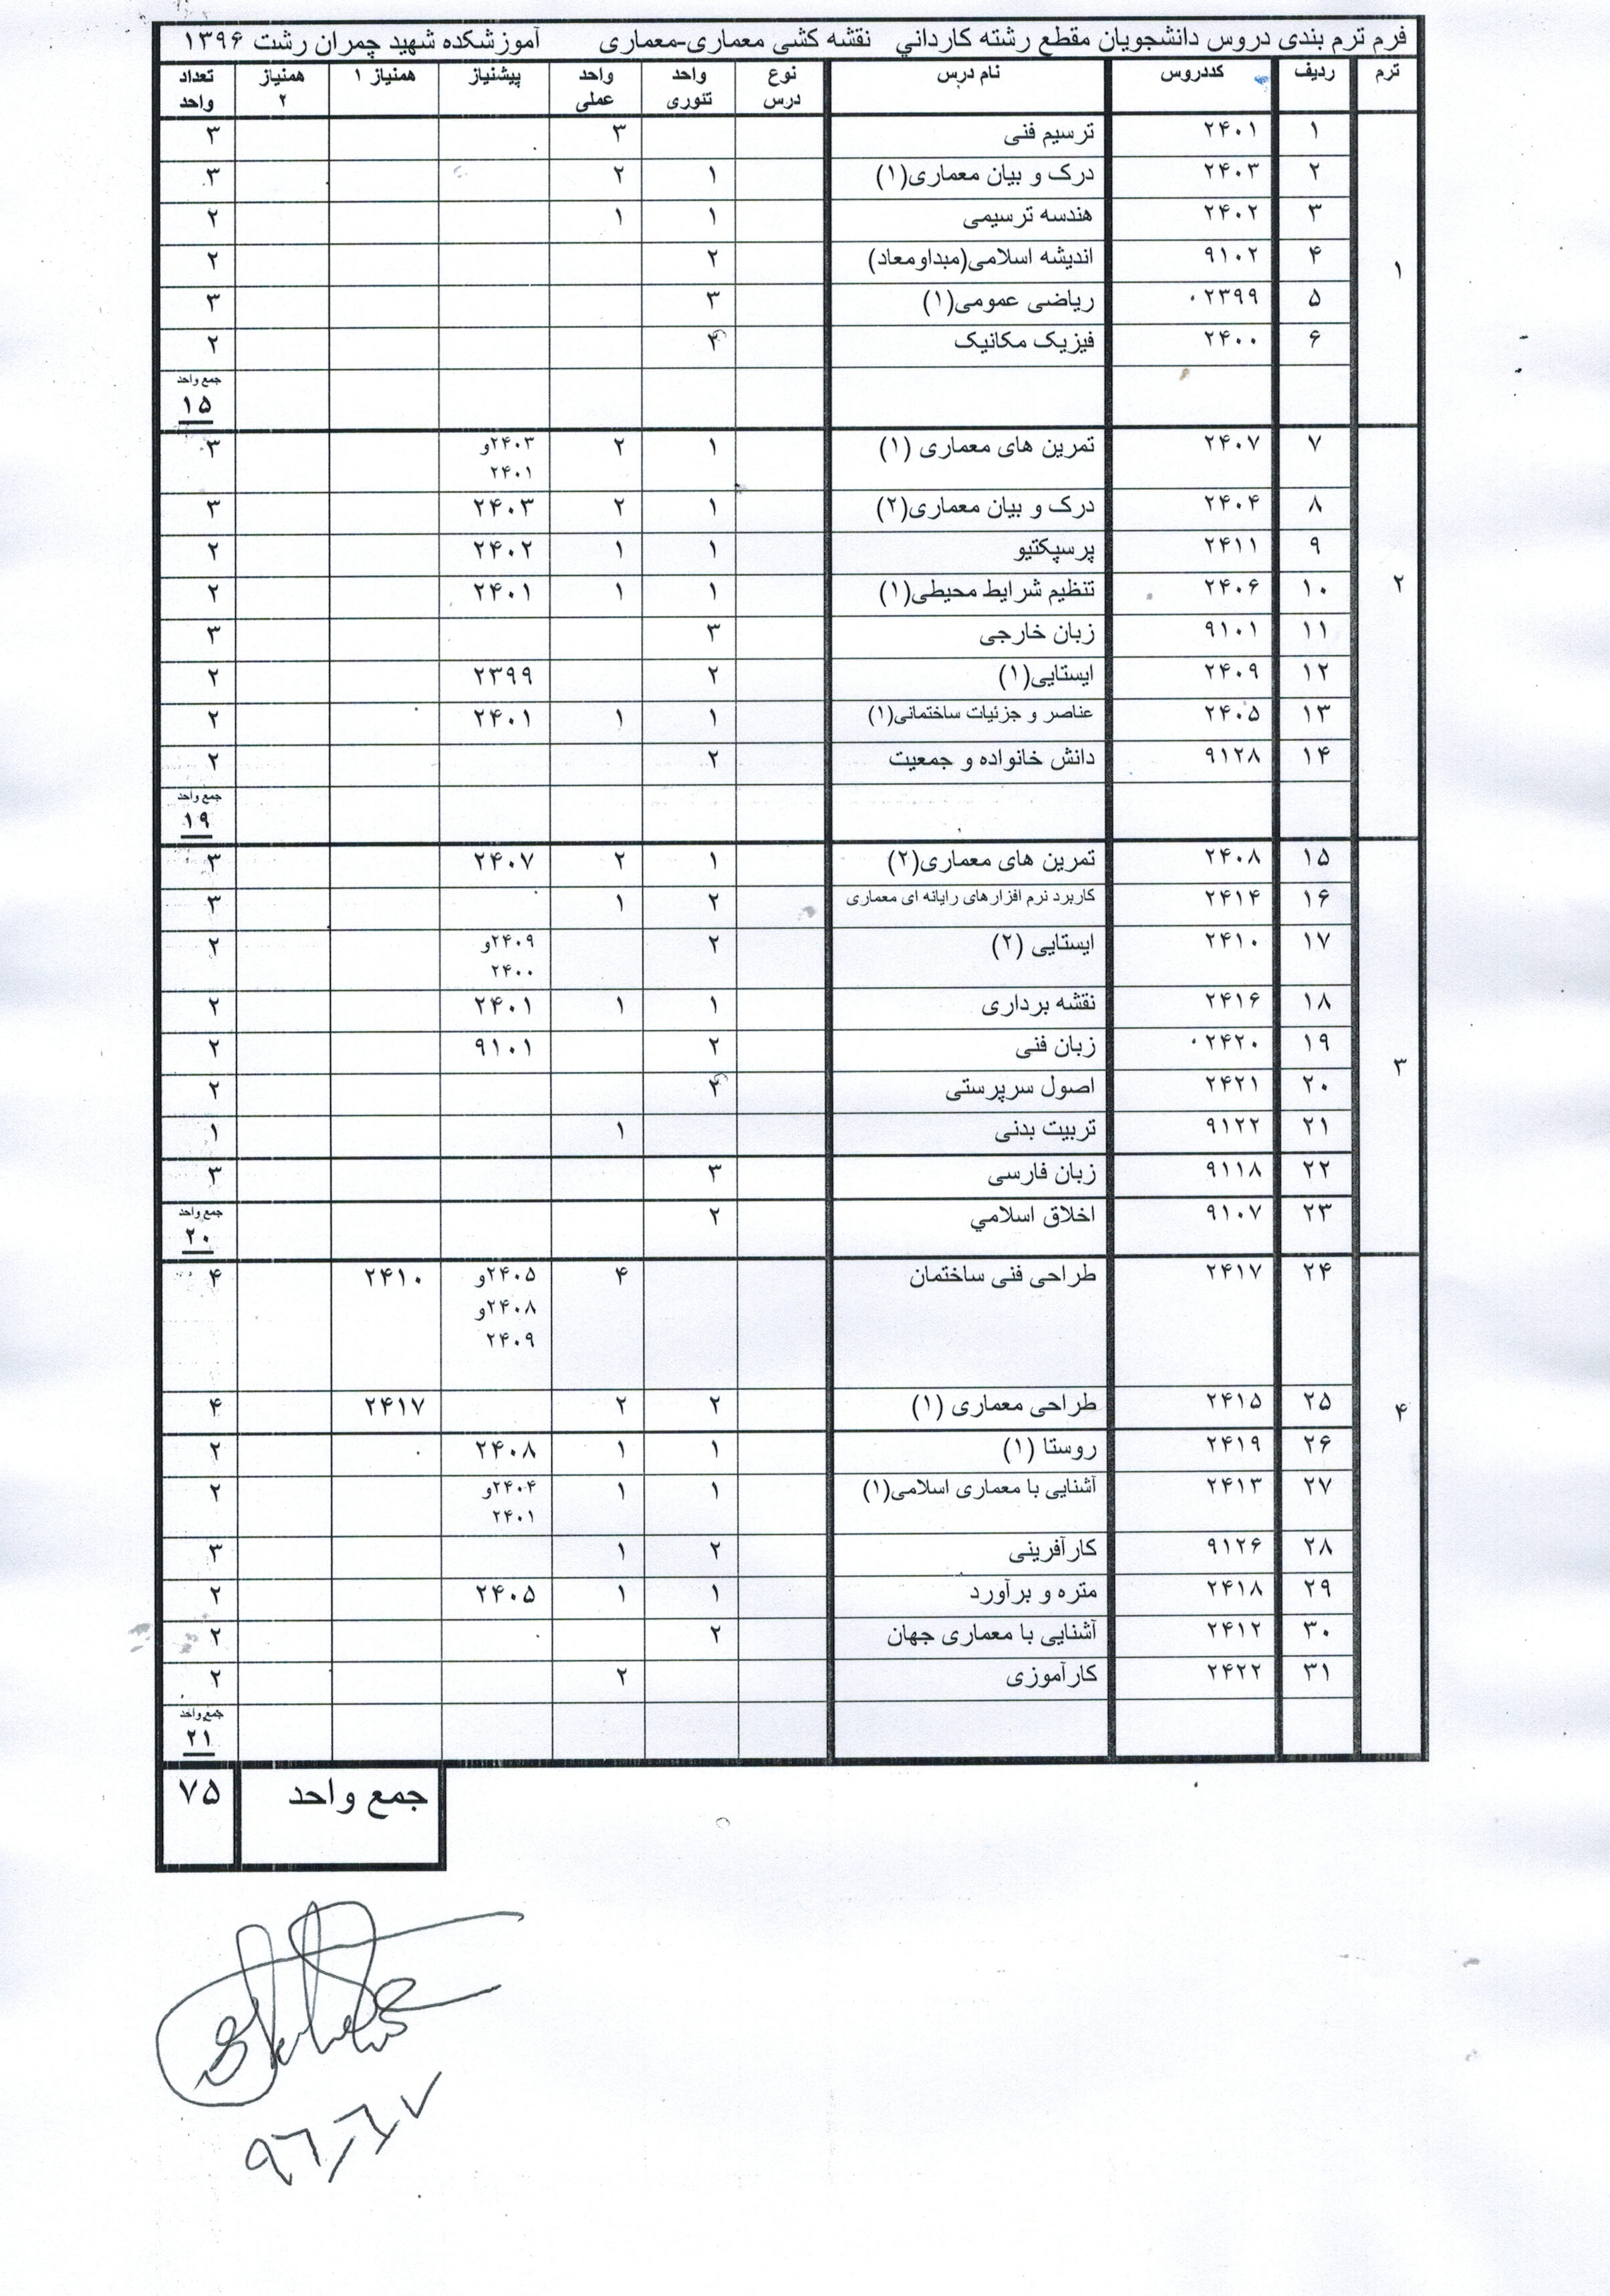 فرم ترم بندی دروس دانشجویان مقطع رشته کارداني نقشه کشی معماری-معماری آموزشکده شهید چمران رشت ۱۳۹۶
ترم ردیف کددروس نام درس نوع درس واحد تئوری واحد عملی پیشنیاز همنیاز ۱ همنیاز ۲ تعداد واحد
۱
۱ ۲۴۰۱ ترسیم فنی ۳ ۳
۲ ۲۴۰۳ درک و بیان معماری(۱) ۱ ۲ ۳
۳ ۲۴۰۲ هندسه ترسیمی ۱ ۱ ۲
۴ ۹۱۰۲ اندیشه اسلامی(مبداومعاد) ۲ ۲
۵ ۲۳۹۹ ریاضی عمومی(۱) ۳ ۳
۶ ۲۴۰۰ فیزیک مکانیک ۲ ۲
جمع واحد
۱۵
۲
۷ ۲۴۰۷ تمرین های معماری (۱) ۱ ۲ ۲۴۰۳و ۲۴۰۱ ۳
۸ ۲۴۰۴ درک و بیان معماری(۲) ۱ ۲ ۲۴۰۳ ۳
۹ ۲۴۱۱ پرسپکتیو ۱ ۱ ۲۴۰۲ ۲
۱۰ ۲۴۰۶ تنظیم شرایط محیطی(۱) ۱ ۱ ۲۴۰۱ ۲
۱۱ ۹۱۰۱ زبان خارجی ۳ ۳
۱۲ ۲۴۰۹ ایستایی(۱) ۲ ۲۳۹۹ ۲
۱۳ ۲۴۰۵ عناصر و جزئیات ساختمانی(۱) ۱ ۱ ۲۴۰۱ ۲
۱۴ ۹۱۲۸ دانش خانواده و جمعیت ۲ ۲
جمع واحد
۱۹
۳
۱۵ ۲۴۰۸ تمرین های معماری(۲) ۱ ۲ ۲۴۰۷ ۳
۱۶ ۲۴۱۴ کاربرد نرم افزارهای رایانه ای معماری ۲ ۱ ۳
۱۷ ۲۴۱۰ ایستایی (۲) ۲ ۲۴۰۹و ۲۴۰۰ ۲
۱۸ ۲۴۱۶ نقشه برداری ۱ ۱ ۲۴۰۱ ۲
۱۹ ۲۴۲۰ زبان فنی ۲ ۹۱۰۱ ۲
۲۰ ۲۴۲۱ اصول سرپرستی ۲ ۲
۲۱ ۹۱۲۲ تربیت بدنی ۱ ۱
۲۲ ۹۱۱۸ زبان فارسی ۳ ۳
۲۳ ۹۱۰۷ اخلاق اسلامي ۲ جمع واحد
۲۰
۴
۲۴ ۲۴۱۷ طراحی فنی ساختمان ۴ ۲۴۰۵و ۲۴۰۸و ۲۴۰۹ ۲۴۱۰ ۴
۲۵ ۲۴۱۵ طراحی معماری (۱) ۲ ۲ ۲۴۱۷ ۴
۲۶ ۲۴۱۹ روستا (۱) ۱ ۱ ۲۴۰۸ ۲
۲۷ ۲۴۱۳ آشنایی با معماری اسلامی(۱) ۱ ۱ ۲۴۰۴و ۲۴۰۱ ۲
۲۸ ۹۱۲۶ کارآفرینی ۲ ۱ ۳
۲۹ ۲۴۱۸ متره و برآورد ۱ ۱ ۲۴۰۵ ۲
۳۰ ۲۴۱۲ آشنایی با معماری جهان ۲ ۲
۳۱ ۲۴۲۲ کارآموزی ۲ ۲
جمع واحد
۲۱
جمع واحد ۷۵